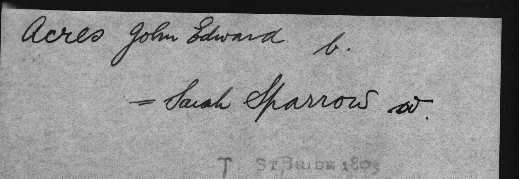 Acres John Edward b.
= Sarah Sparrow w.
T ST BRIDE 1805